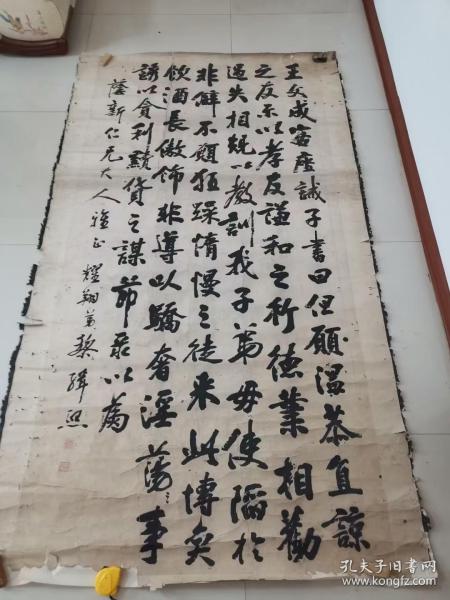 王文成客座誡子書曰但願温恭直諒
之友示以孝友謙和之行德業相勸
過失相規以教訓我子弟毋使陷於
非僻不願狂躁惰慢之徒来此博奕
飲酒長傲飾非導以驕奢淫蕩之事
誘以貪利黷貨之謀
以為
蔭新仁兄大人雅正 耀翔弟黎
孔夫子旧书网
www.kongfz.com